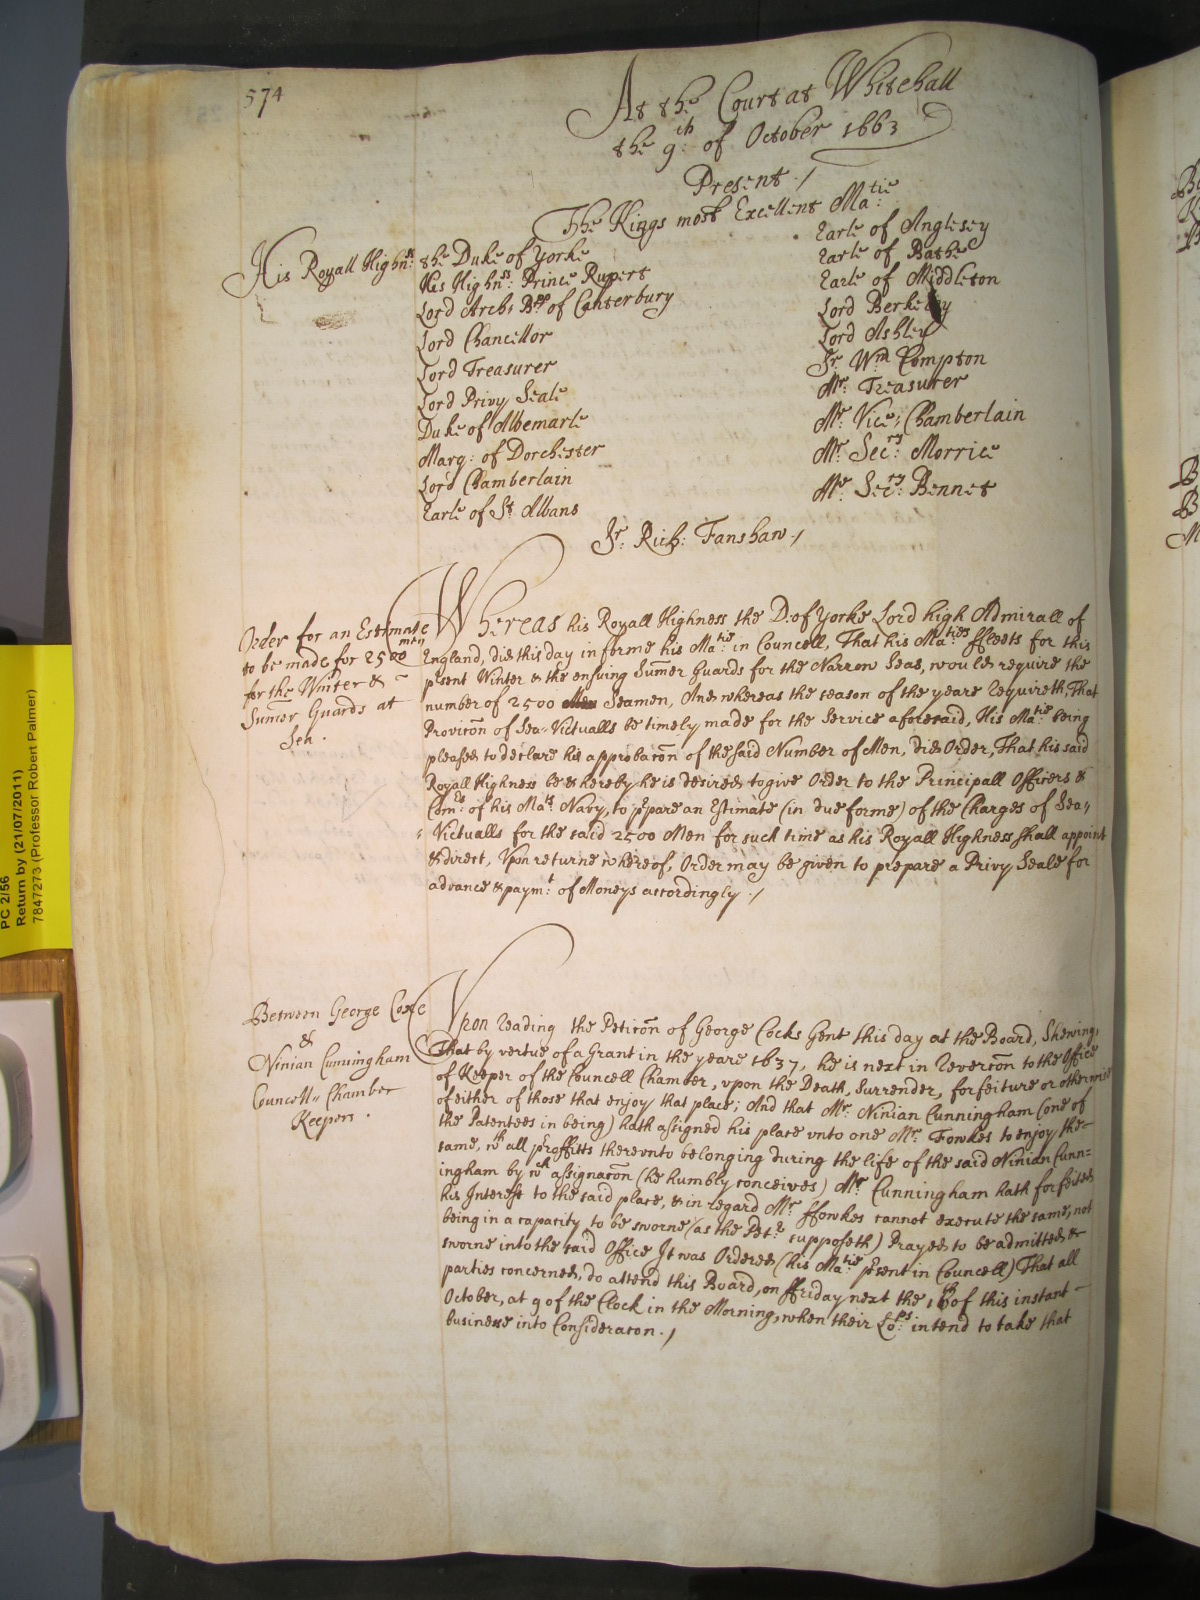 574
At the Court at Whitehall
the 9th: of October 1663
Present ./
The Kings most Excellent Ma:tie
His Royall Highn:s the Duke of Yorke
His Highn:s Prince Rupert
Lord Arch: Bpp of Canterbury
Lord Chancellor
Lord Treasurer
Lord Privy Seale
Duke of Albemarle
Marq: of Dorchester
Lord Chamberlain
Earle of St. Albans
Earle of Anglesey
Earle of Bathe
Earle of Middleton
Lord Berkeley
Lord Ashley
Sr. Wm. Compton
Mr: Treasurer
Mr: Vice; Chamberlain
Mr: Sec:ry Morrice
Mr: Sec:ry Bennet
Sr: Rich: Fanshaw ./
Order for an Estimate
to be made for 2500 men
for the Winter & ~
Sumer Guards at
Sea .
Whereas his Royall Highness the D. of Yorke Lord high Admirall of
England, did this day informe his Ma:tie in Councell, That his Ma:ties ffleets for this
pñsent Winter & the ensuing Sumer Guards for the Narrow Seas, would require the
number of 2500 Men Seamen, And whereas the season of the yeare requireth, That
Provicõn of Sea-Victualls be timely made for the Service aforesaid, His Ma:tie being
pleased to declare his approbacõn of the said Number of Men, did Order, That his said
Royall Highness be & hereby he is desired to give Order to the Principall Officers &
Com:rs of his Ma:ts Navy, to p̱pare an Estimate (in due forme) of the Charges of Sea,,
,, Victualls for the said 2500 Men for such time as his Royall Highness shall appoint
& direct, Vpon returne whereof, Order may be given to prepare a Privy Seale for
advance & paym:t of Moneys accordingly ./
Between George Coxe
&
Ninian Cunningham
Councell,, Chamber
Keepers .
Vpon reading the Peticõn of George Cocks Gent this day at the Board, Shewing,
That by vertue of a Grant in the yeare 1637, he is next in Revercõn to the Office
of Keeper of the Councell Chamber, vpon the Death, Surrender, forfeiture or otherwise
of either of those that enjoy that place; And that Mr: Ninian Cunningham (one of
the Patentees in being) hath assigned his place vnto one Mr: Fowkes to enjoy the-
same, wth all proffitts therevnto belonging during the life of the said Ninian Cunn=
ingham by wch assignacõn (he humbly conceives) Mr Cunningham hath forfeited
his Interest to the said place, & in regard Mr: ffowkes cannot execute the same, not
being in a capacity to be sworne (as the Pet:r supposeth) Prayed to be admitted &
sworne into the said Office It was Ordered (his Ma:tie p̱sent in Councell) That all
parties concerned, do attend this Board, on ffriday next the 16th of this instant -
October, at 9 of the Clock in the Morning, when their Lo:ps intend to take that
businesse into Consideracon ./
PC 2/56
Return by (21/07/2011)
7847273 (Professor Robert Palmer)